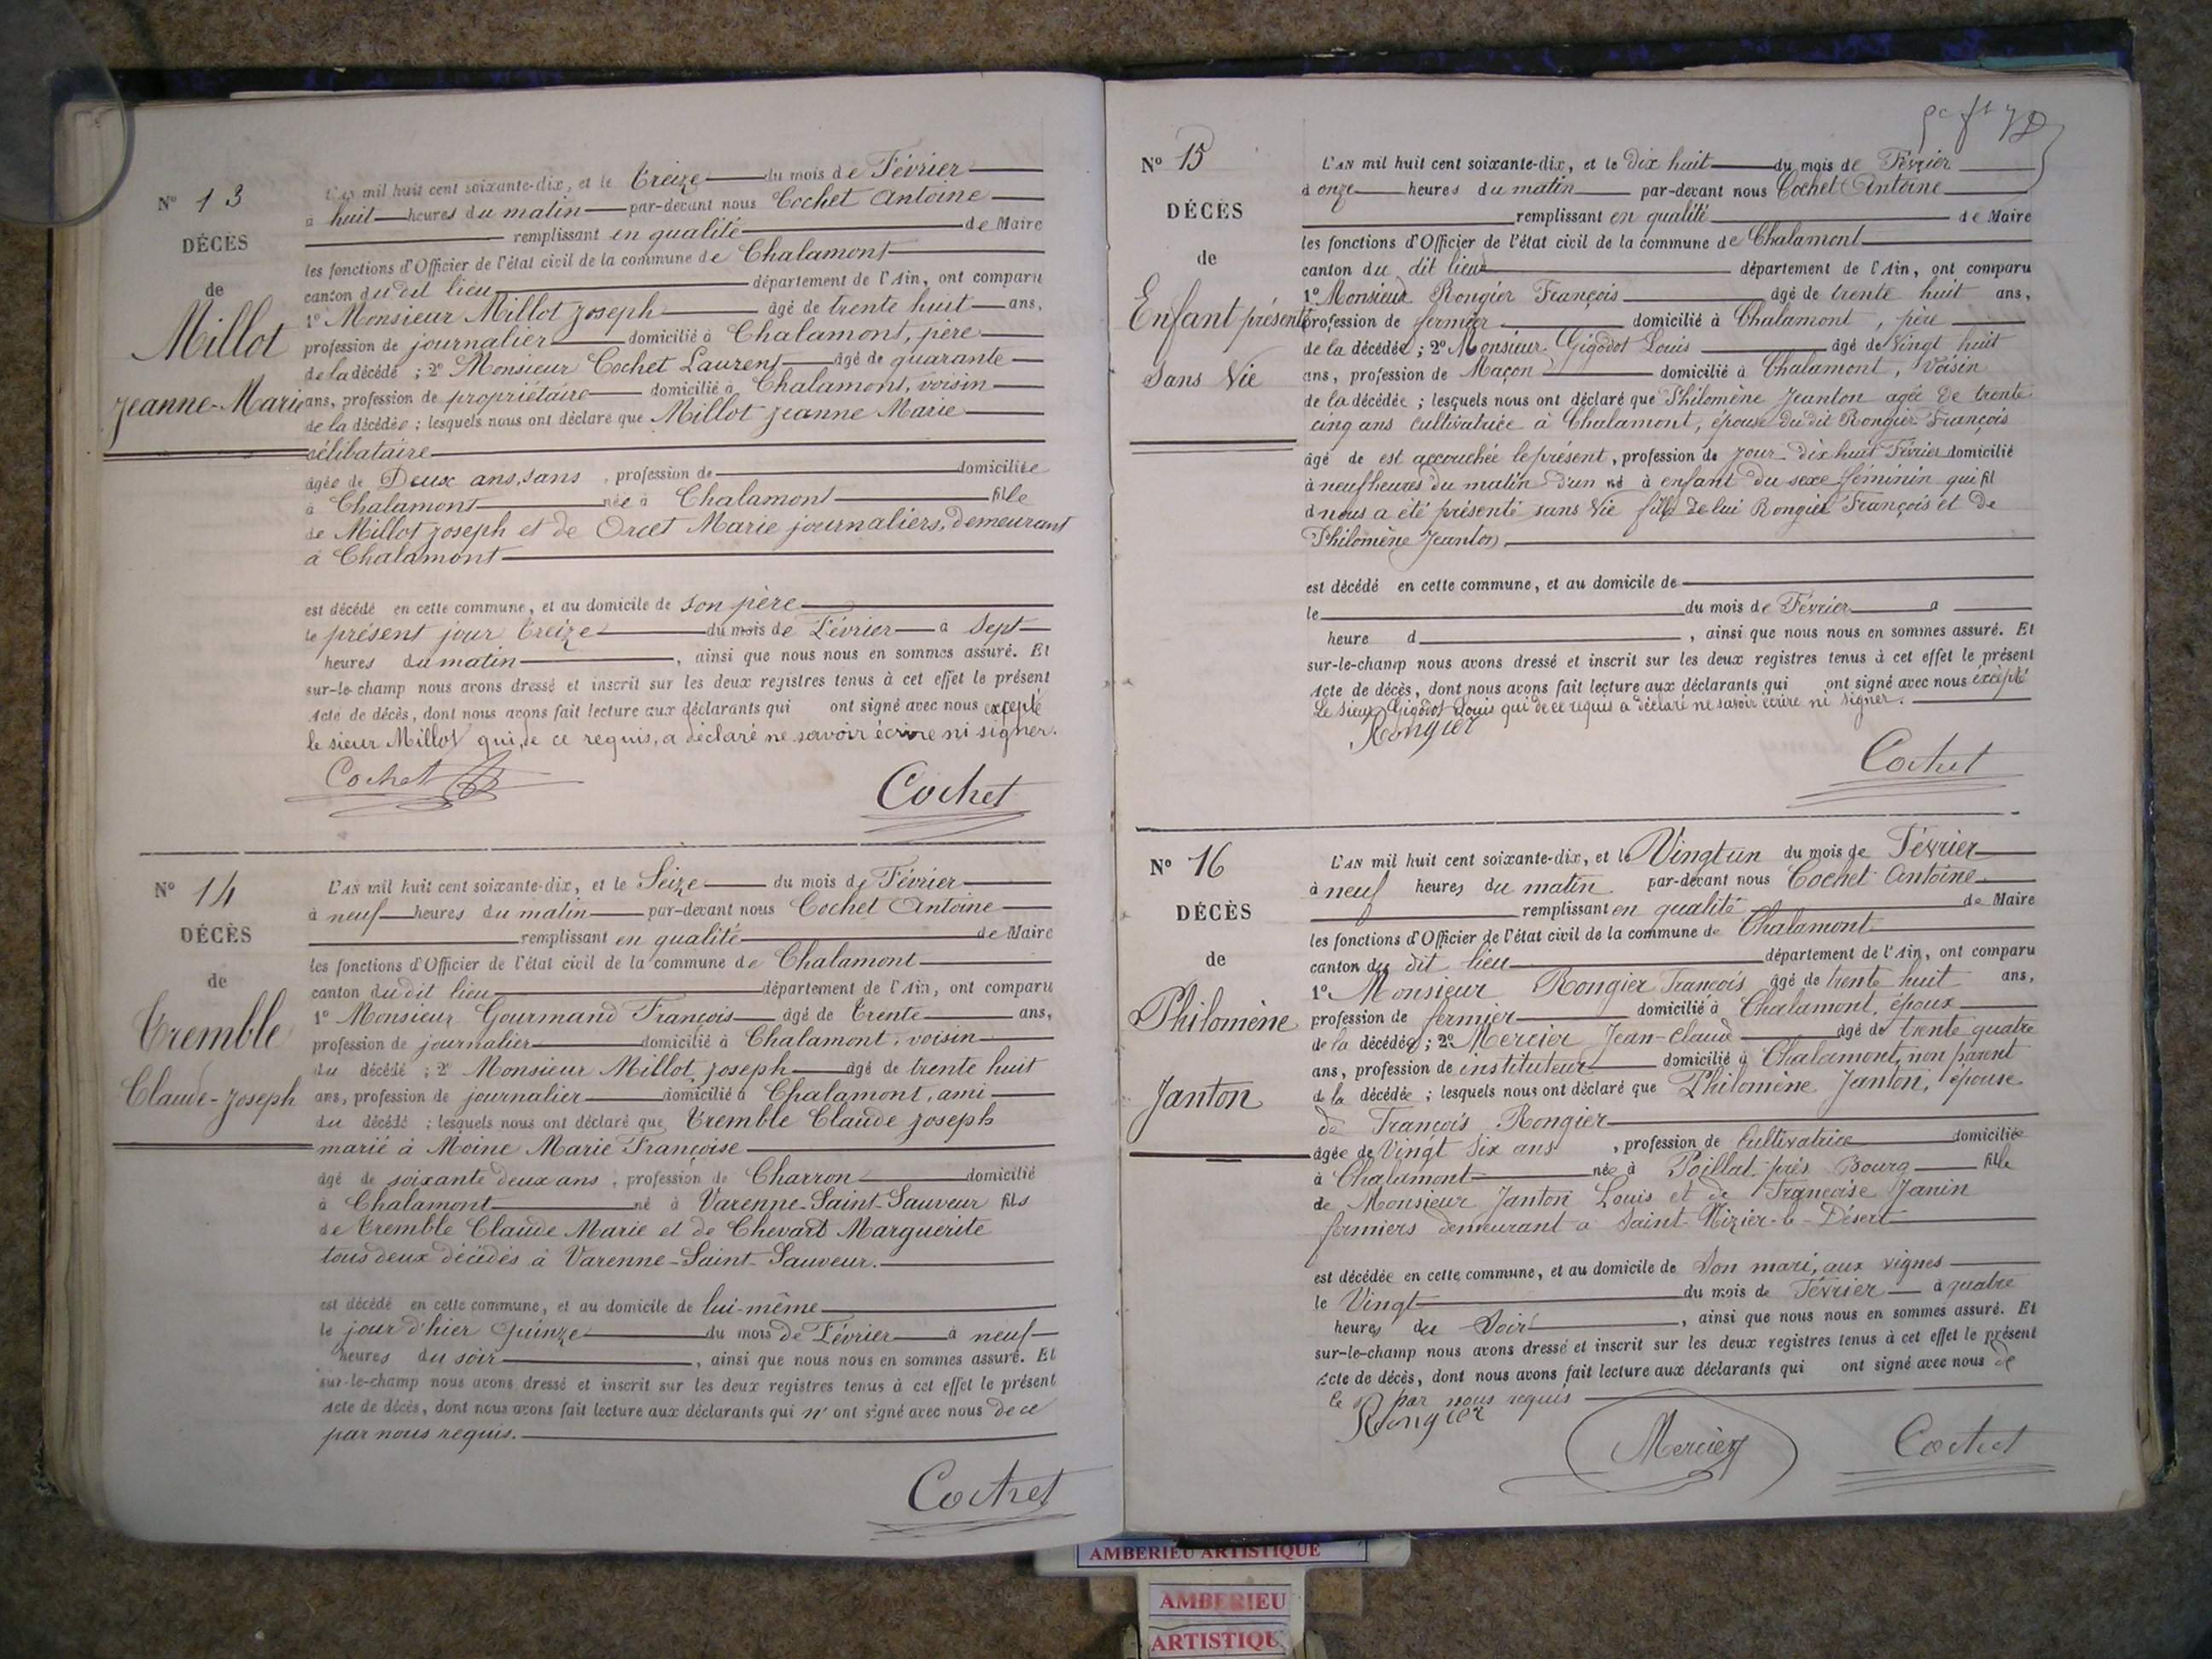 N° 13
DÉCÈS
de
Millot
Jeanne-Marie
L'AN mil huit cent soixante-dix, et le Treize du mois de Février
à huit heures du matin par-devant nous Cochet Antoine
remplissant en qualité de Maire
les fonctions d'Officier de l'état civil de la commune de Chalamont
canton du dit lieu département de l'Ain, ont comparu
1° Monsieur Millot Joseph âgé de trente huit ans,
profession de journalier domicilié à Chalamont, père
de la décédé ; 2° Monsieur Cochet Laurent âgé de quarante
ans, profession de propriétaire domicilié à Chalamont, voisin
de la décédée ; lesquels nous ont déclaré que Millot Jeanne Marie
célibataire
âgée de Deux ans, sans , profession de domiciliée
à Chalamont née à Chalamont fille
de Millot Joseph et de Orcet Marie journaliers, demeurant
à Chalamont
est décédé en cette commune, et au domicile de son père
le présent jour Treize du mois de Février à Sept
heures du matin , ainsi que nous nous en sommes assuré. Et
sur-le-champ nous avons dressé et inscrit sur les deux registres tenus à cet effet le présent
Acte de décès, dont nous avons fait lecture aux déclarants qui ont signé avec nous excepté
le sieur Millot qui, de ce requis, a déclaré ne savoir écrire ni signer.
Cochet
Cochet
N° 14
DÉCÈS
de
Tremble
Claude-Joseph
L'AN mil huit cent soixante-dix, et le Seize du mois de Février
à neuf heures du matin par-devant nous Cochet Antoine
remplissant en qualité de Maire
les fonctions d'Officier de l'état civil de la commune de Chalamont
canton du dit lieu département de l'Ain, ont comparu
1° Monsieur Gourmand François âgé de Trente ans,
profession de journalier domicilié à Chalamont, voisin
du décédé ; 2° Monsieur Millot Joseph âgé de trente huit
ans, profession de journalier domicilié à Chalamont, ami
du décédé ; lesquels nous ont déclaré que Tremble Claude Joseph
marié à Moine Marie Françoise
âgé de soixante deux ans , profession de Charron domicilié
à Chalamont né à Varenne-Saint-Sauveur fils
de Tremble Claude Marie et de Chevart Marguerite
tous deux décédés à Varenne-Saint-Sauveur.
est décédé en cette commune, et au domicile de lui-même
le jour d'hier Quinze du mois de Février à neuf
heures du soir , ainsi que nous nous en sommes assuré. Et
sur-le-champ nous avons dressé et inscrit sur les deux registres tenus à cet effet le présent
Acte de décès, dont nous avons fait lecture aux déclarants qui n'ont signé avec nous de ce
par nous requis.
Cochet
N° 15
DÉCÈS
de
Enfant présenté
Sans Vie
L'AN mil huit cent soixante-dix, et le Dix huit du mois de Février
à onze heures du matin par-devant nous Cochet Antoine
remplissant en qualité de Maire
les fonctions d'Officier de l'état civil de la commune de Chalamont
canton du dit lieu département de l'Ain, ont comparu
1° Monsieur Rongier François âgé de trente huit ans,
profession de fermier domicilié à Chalamont, père
de la décédée ; 2° Monsieur Gigodot Louis âgé de Vingt huit
ans, profession de Maçon domicilié à Chalamont, Voisin
de la décédée ; lesquels nous ont déclaré que Philomène Jeanton agée de trente
cinq ans Cultivatrice à Chalamont, épouse du dit Rongier François
âgé de est accouchée le présent , profession de jour dix huit Février domicilié
à neuf heures du matin d'un né à enfant du sexe féminin qui fil
d nous a été présenté sans Vie fille de lui Rongier François et de
Philomène Jeanton
est décédé en cette commune, et au domicile de
le du mois de Février à
heure d , ainsi que nous nous en sommes assuré. Et
sur-le-champ nous avons dressé et inscrit sur les deux registres tenus à cet effet le présent
Acte de décès, dont nous avons fait lecture aux déclarants qui ont signé avec nous excepté
Le Sieur Gigodot Louis qui de ce requis a déclaré ne savoir écrire ni signer.
Rongier
Cochet
N° 16
DÉCÈS
de
Philomène
Janton
L'AN mil huit cent soixante-dix, et le Vingt un du mois de Février
à neuf heures du matin par-devant nous Cochet Antoine
remplissant en qualité de Maire
les fonctions d'Officier de l'état civil de la commune de Chalamont
canton du dit lieu département de l'Ain, ont comparu
1° Monsieur Rongier François âgé de trente huit ans,
profession de fermier domicilié à Chalamont, époux
de la décédée ; 2° Mercier Jean-Claude âgé de trente quatre
ans, profession de instituteur domicilié à Chalamont, non parent
de la décédée ; lesquels nous ont déclaré que Philomène Janton, épouse
de François Rongier
âgée de Vingt Six ans , profession de Cultivatrice domiciliée
à Chalamont née à Poillat près Bourg fille
de Monsieur Janton Louis et de Françoise Janin
fermiers demeurant à Saint-Nizier-le-Désert
est décédée en cette commune, et au domicile de Son mari, aux vignes
le Vingt du mois de Février à quatre
heures du Soir , ainsi que nous nous en sommes assuré. Et
sur-le-champ nous avons dressé et inscrit sur les deux registres tenus à cet effet le présent
Acte de décès, dont nous avons fait lecture aux déclarants qui ont signé avec nous de
ce par nous requis
Rongier
Mercier
Cochet
AMBERIEU ARTISTIQUE
AMBERIEU
ARTISTIQU